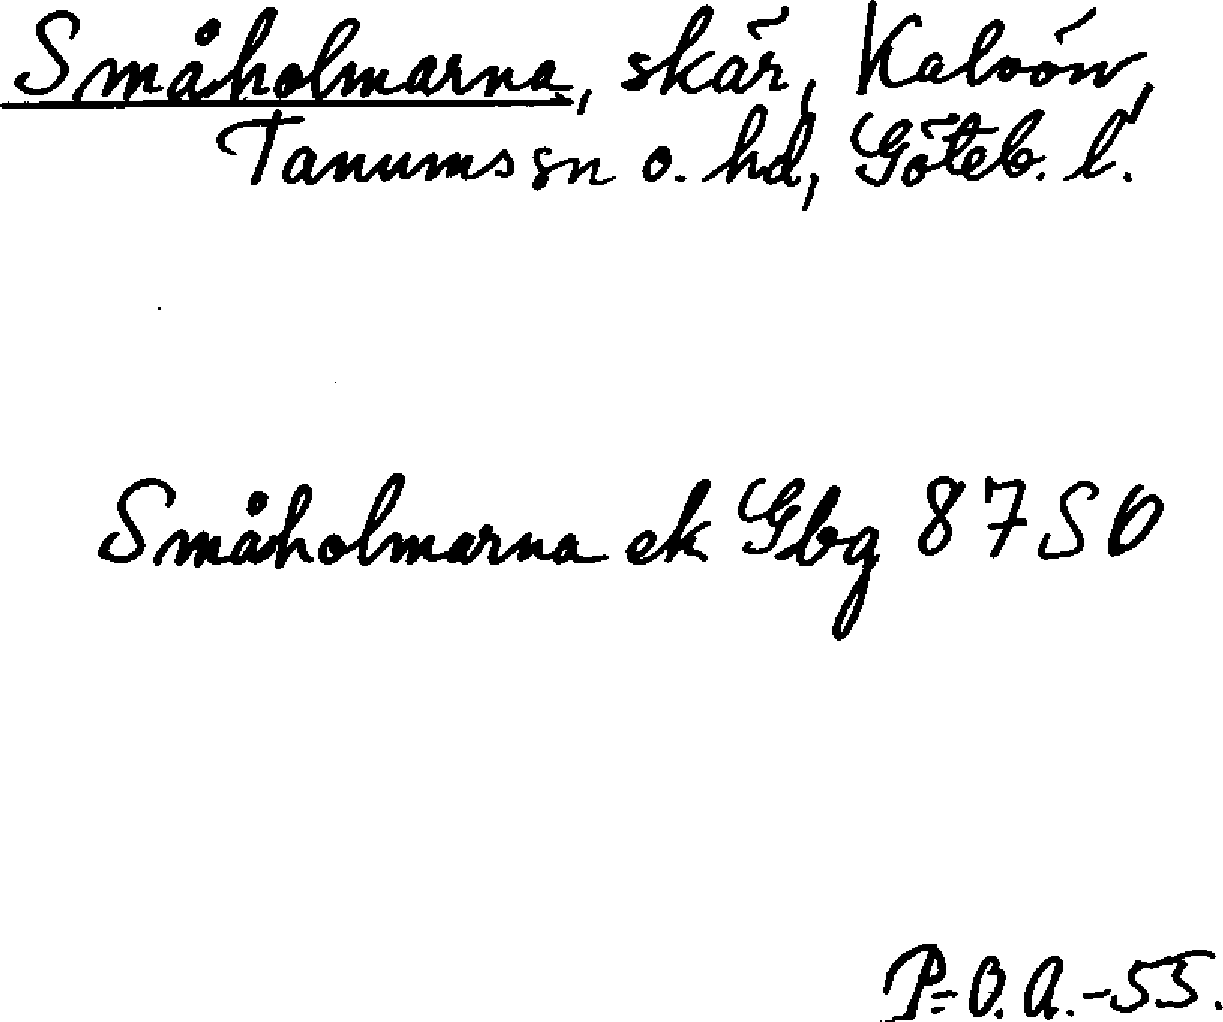 Småholmarna, skär, Kalvön,
Tanums sn o. hd, Göteb. l.
Småholmarna ek Gbg 87 SO
P=O.A.-55.